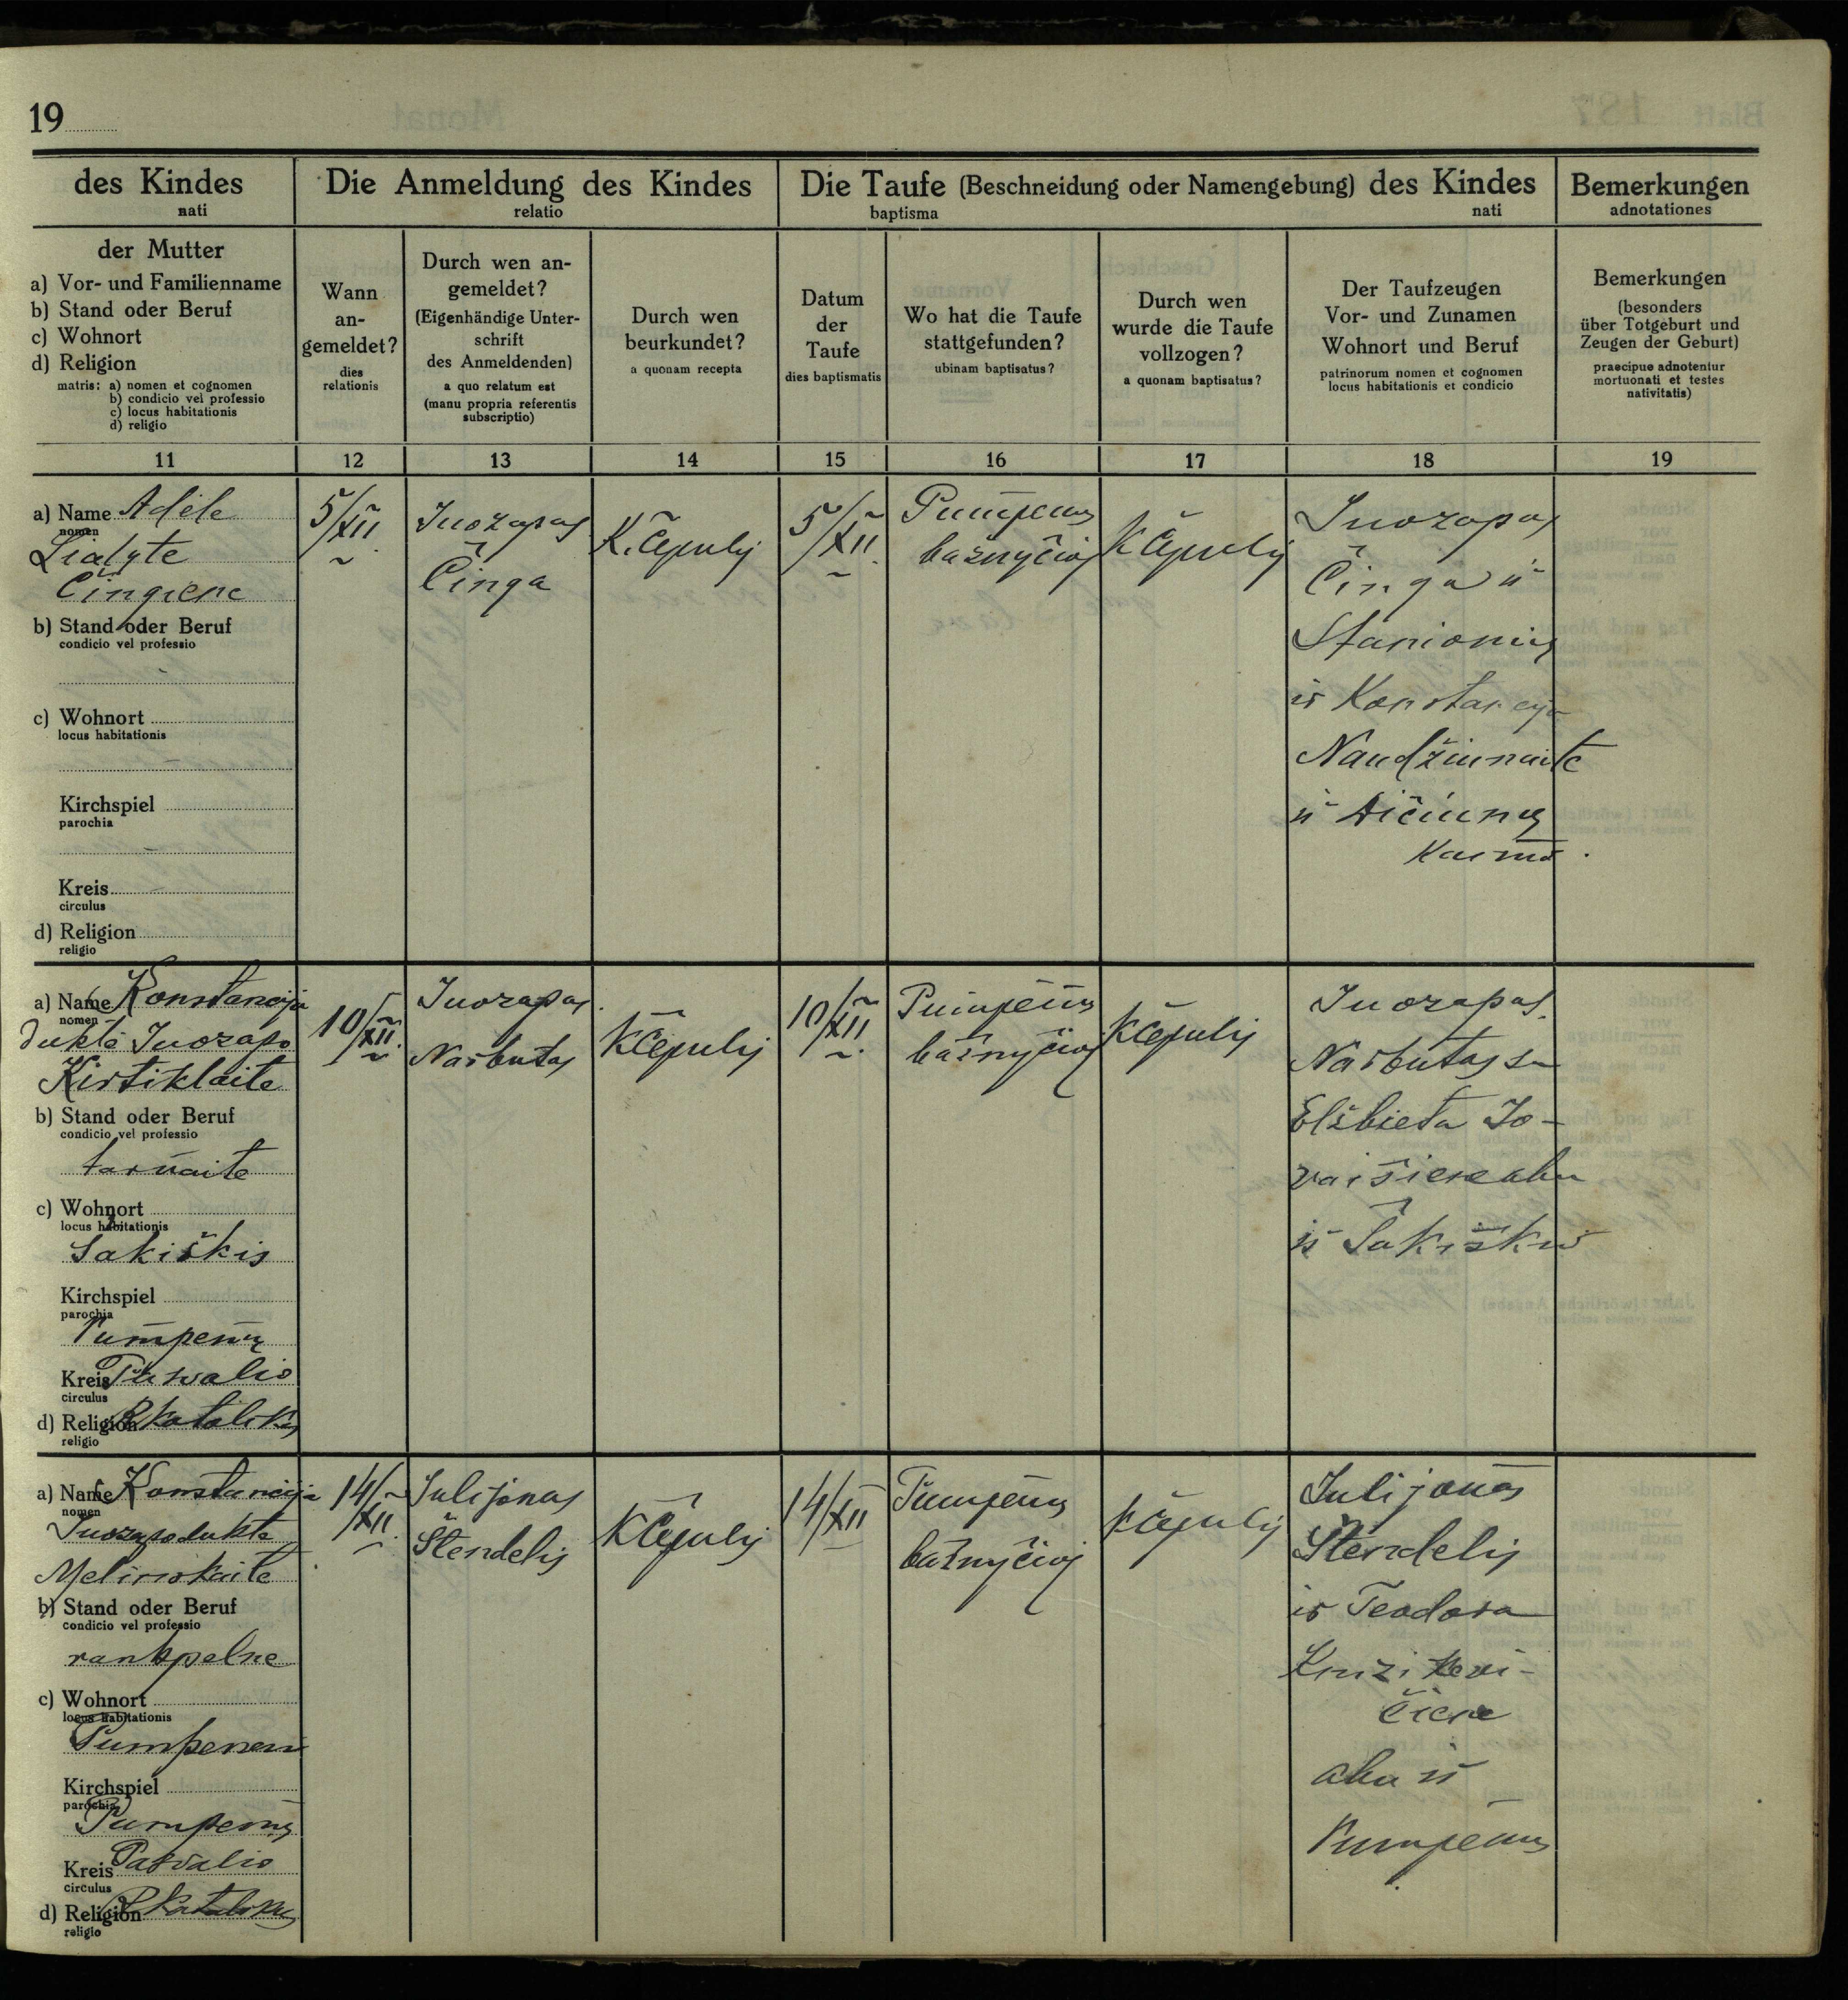 19
des Kindes
nati
Die Anmeldung des Kindes
relatio
Die Taufe (Beschneidung oder Namengebung) des Kindes
baptisma nati
Bemerkungen
adnotationes
der Mutter
a) Vor- und Familienname
b) Stand oder Beruf
c) Wohnort
d) Religion
matris: a) nomen et cognomen
b) condicio vel professio
c) locus habitationis
d) religio
Wann
an-
gemeldet?
dies
relationis
Durch wen an-
gemeldet?
(Eigenhändige Unter-
schrift
des Anmeldenden)
a quo relatum est
(manu propria referentis
subscriptio)
Durch wen
beurkundet?
a quonam recepta
Datum
der
Taufe
dies baptismatis
Wo hat die Taufe
stattgefunden?
ubinam baptisatus?
Durch wen
wurde die Taufe
vollzogen?
a quonam baptisatus?
Der Taufzeugen
Vor- und Zunamen
Wohnort und Beruf
patrinorum nomen et cognomen
locus habitationis et condicio
Bemerkungen
(besonders
über Totgeburt und
Zeugen der Geburt)
praecipue adnotentur
mortuonati et testes
nativitatis)
11 12 13 14 15 16 17 18 19
a) Name Adėlė
nomen
Čingienė
b) Stand oder Beruf
condicio vel professio
-
c) Wohnort
locus habitationis
-
Kirchspiel
parochia
-
Kreis
circulus
d) Religion
religio
5/XII
Juozapas
Činga
K. Čepulis
5/XII
Pumpėnų
bažnyčioj
K Čepulis
Juozapas
Činga iš
Stanionių
ir Konstancija
Naudžiunaitė
iš Aičiunų
kaimo.
a) Name Konstancija
nomen
duktė Juozapo
Kirtiklaitė
b) Stand oder Beruf
condicio vel professio
tarnaitė
c) Wohnort
locus habitationis
Sakiškis
Kirchspiel
parochia
Pumpėnų
Kreis
circulus
d) Religion R Katalikų
religio
10/XII.
Juozapas
Narbutas
K Čepulis
10/XII.
Pumpėnų
bažnyčioj
K Čepulis
Juozapas
Narbutas su
Elžbieta Jo-
vaišiene abu
iš Sakiškio
a) Name Konstancija
nomen
Juozapo duktė
b) Stand oder Beruf
condicio vel professio
rankpelnė
c) Wohnort
locus habitationis
Pumpėnai
Kirchspiel
parochia
Pumpėnų
Kreis Pasvalio
circulus
d) Religion R Katalikų
religio
14/XII.
Julijonas
Stendelis
K Čepulis
14/XII
Pumpėnų
bažnyčioj
K Čepulis
Julijonas
Stendelis
ir Teodora
čienė
abu iš
Pumpėnų